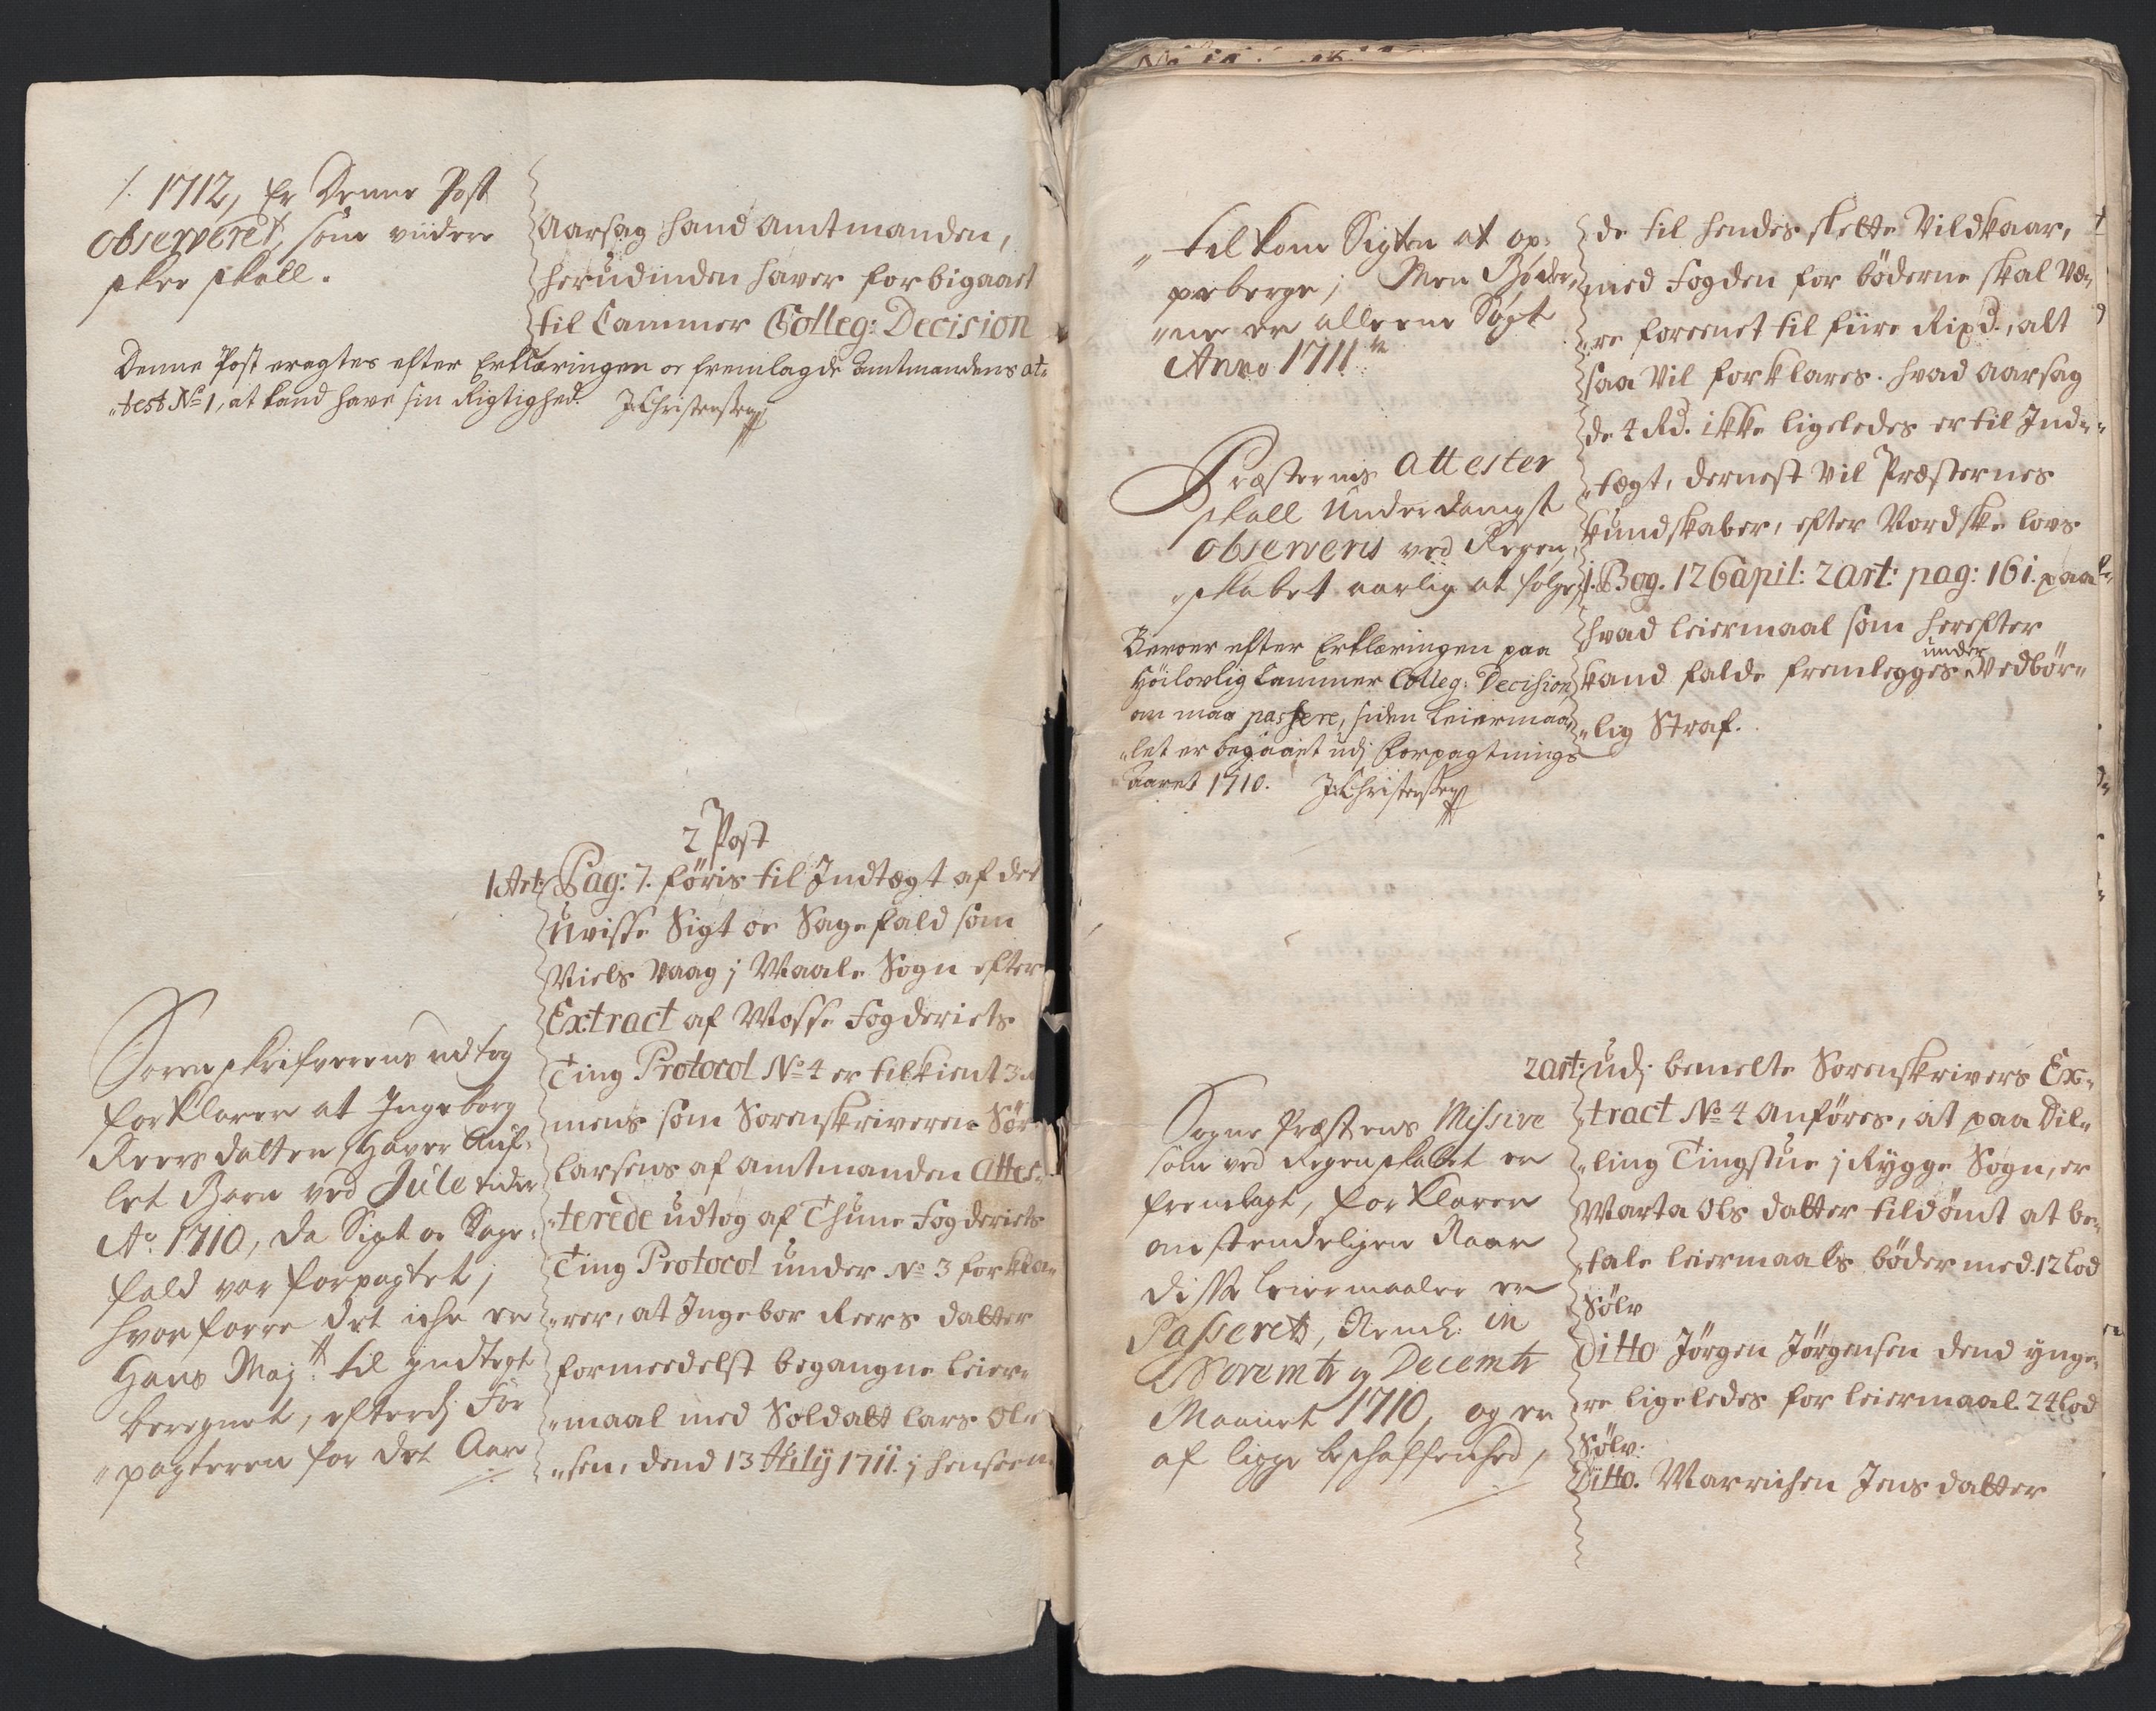 /. 1712, Er Denne Post
observeret, som viidere
skee skall.
Aarsag hand Amtmanden,
herudinden haver forbigaaet
til Cammer Colleg: Decision
Denne Post eragtes efter Erklæringen oc fremlagde Amtmandens at-
"test No 1, at kand have sin Rigtighed. J:Christensen
2 Post
1 Art: Pag: 7. føris til Indtægt af det
Uvisse Sigt oc Sagefald som
Niels Vaag j Maale Sogn efter
Extract af Mosse Fogderiets
Ting Protocol No 4 er tilkient 3
mens som Sorenskriveren Sør
Larsens af Amtmanden Attes-
"terede udtog af Thune Fogderiets
Ting Protocol under No 3 forkla-
"rer, at Ingebor Reers datter
formeedelst begangne Leier-
"maal med Soldatt Lars Ol-
"sen, dend 13 July 1711. j henseen
Sorenskrifverens udtog
forklarer at Ingeborg
Reersdatter, Haver Auf-
let Barn ved Jule tider
Ao 1710, da Sigt oc Sage-
fald var forpagtet;
hvorforre det iche er
Hans Majtt: til indtegt
beregnet, efterdj For
"pagteren for det Aar
"tilkom Sigten at op-
peberge; Men Bøder-
"ne er alleene Søgt
Anno 1711
Præsternis attester
skall Underdanigst
observeris ved Regen-
"skabet aarlig at følge
Beroer efter Erklæringen paa
Høilovlig Cammer Colleg: Decision
om maa passere, siden Leiermaa-
"let er begaaet udj Forpagtnings
Aaret 1710. J:Christensen
Sogne Præstens Missive
som ved Regenskabet er
fremlagt, forklarer
omstendeligen Naar
disse Leiermaaler er
Passeret, Neml: in
Novembr og Decembr
Maanet 1710, og er
af ligge beschaffenhed,
de til hendes slette Vildkaar,
med Fogden for bøderne skal Væ-
"re foreenet til fiire Rixd., alt
saa Vil forklares. hvad aarsag
de 4 Rd. ikke ligeledes er til Ind-
"tægt, dernest Vil Præsternes
kundskaber, efter Nordske lovs
j. Bog. 12 Capit: 2 art: pag: 161. paa
hvad leiermaal som herefter
kand falde fremlegges under Vedbør-
"lig Straf.
2 art: udj bemelte Sorenskrivers Ex-
"tract No 4 Anføres, at paa Dil-
"ling Tingstue j Rygge Sogn, er
Marta Ols datter tildømt at be-
"tale leiermaals bøder med 12 Lod
Sølv
Ditto Jørgen Jørgensen dend ynge-
re ligeledes for leiermaal 24 Lod
Sølv:
Ditto. Marrichen Jens datter